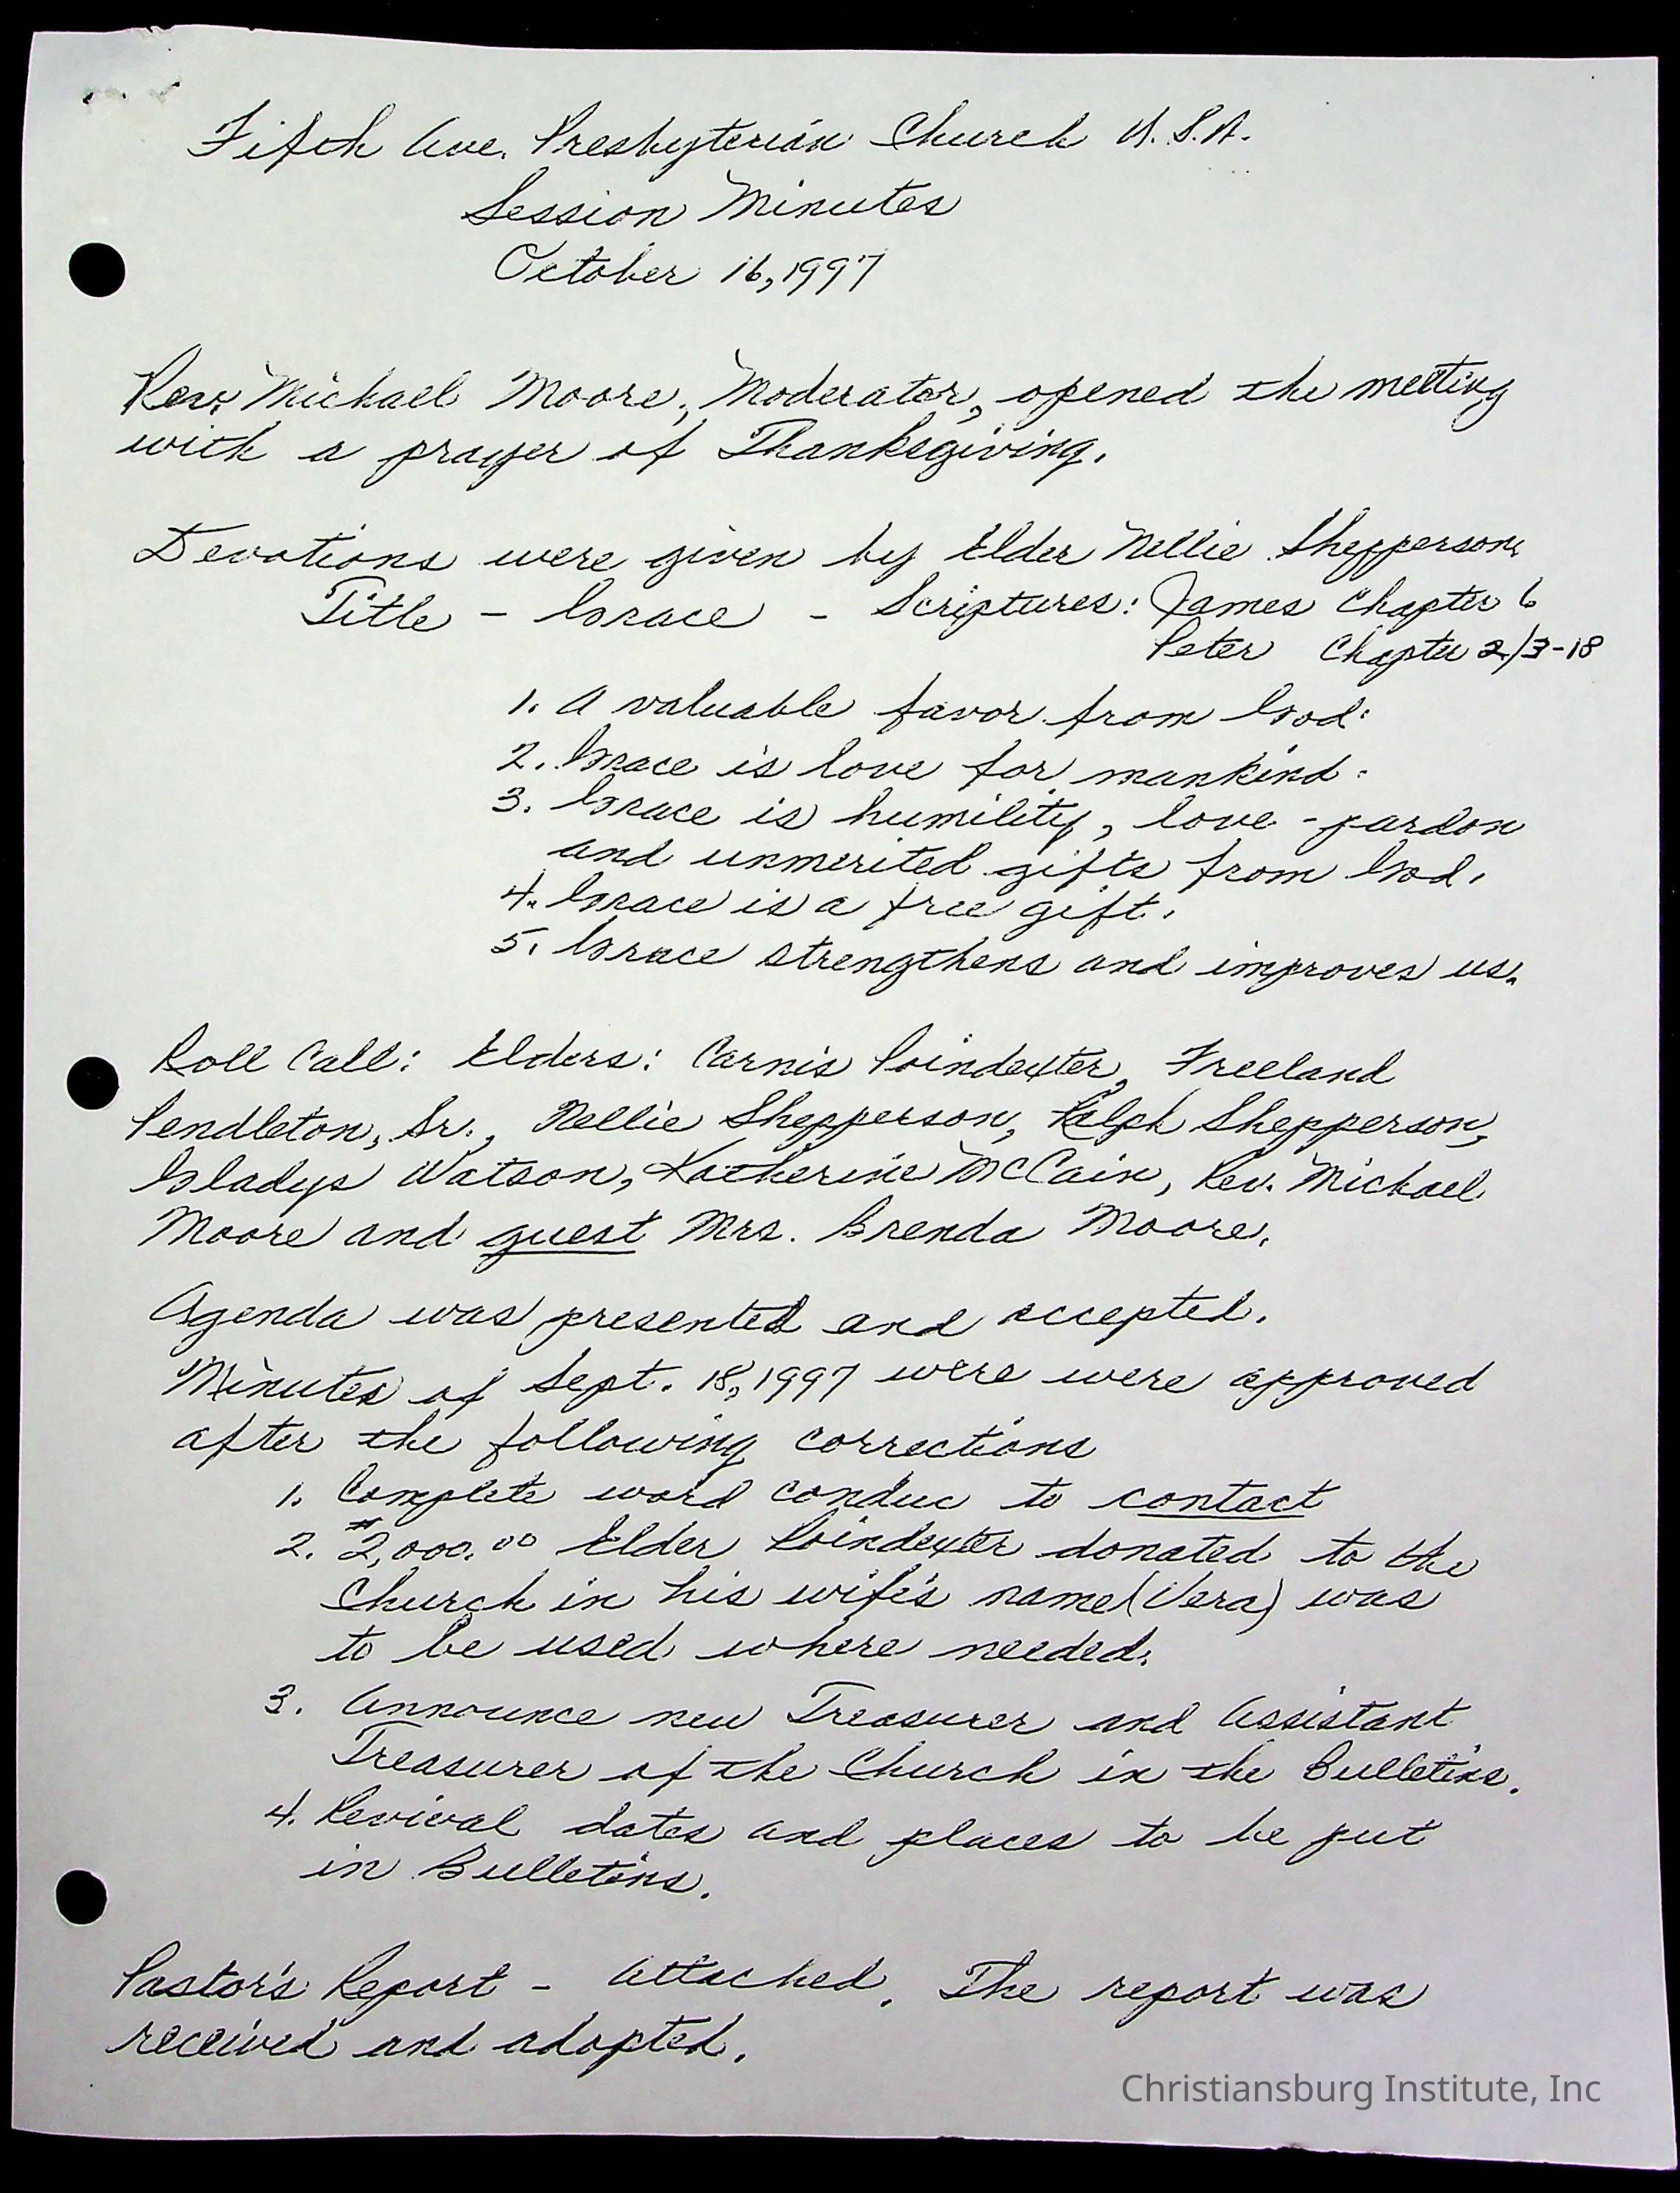 Fifth Ave. Presbyterian Church U.S.A.
Session Minutes
October 16, 1997
Rev. Michael Moore, Moderator, opened the meeting
with a prayer of Thanksgiving.
Devotions were given by Elder Nellie Shepperson.
Title - Grace - Scriptures: James Chapter 6
Peter Chapter 2/3-18
1. A valuable favor from God.
2. Grace is love for mankind.
3. Grace is humility, love - pardon
and unmerited gifts from God.
4. Grace is a free gift.
5. Grace strengthens and improves us.
Roll Call: Elders: Carnis Poindexter, Freeland
Pendleton, Sr., Nellie Shepperson, Ralph Shepperson,
Gladys Watson, Katherine McCain, Rev. Michael
Moore and guest Mrs. Brenda Moore.
Agenda was presented and accepted.
Minutes of Sept. 18, 1997 were were approved
after the following corrections
1. Complete word conduc to contact
2. $2,000.00 Elder Poindexter donated to the
Church in his wife's name (Vera) was
to be used where needed.
3. Announce new Treasurer and Assistant
Treasurer of the Church in the Bulletins.
4. Revival dates and places to be put
in Bulletins.
Pastor's Report - Attached. The report was
received and adopted.
Christiansburg Institute, Inc